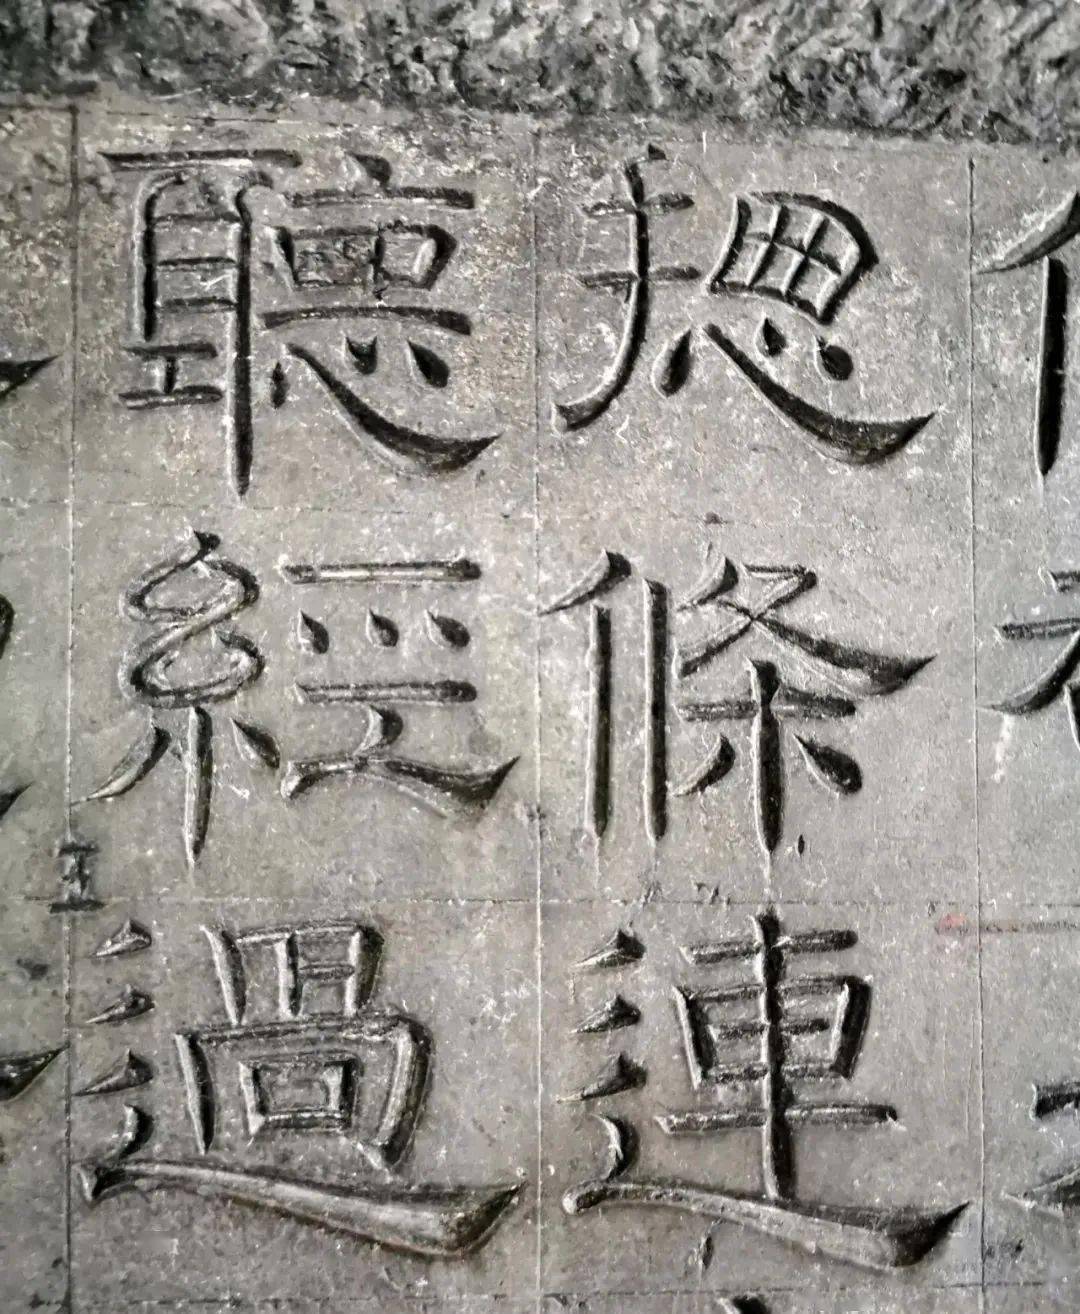 摠條連
聽經過